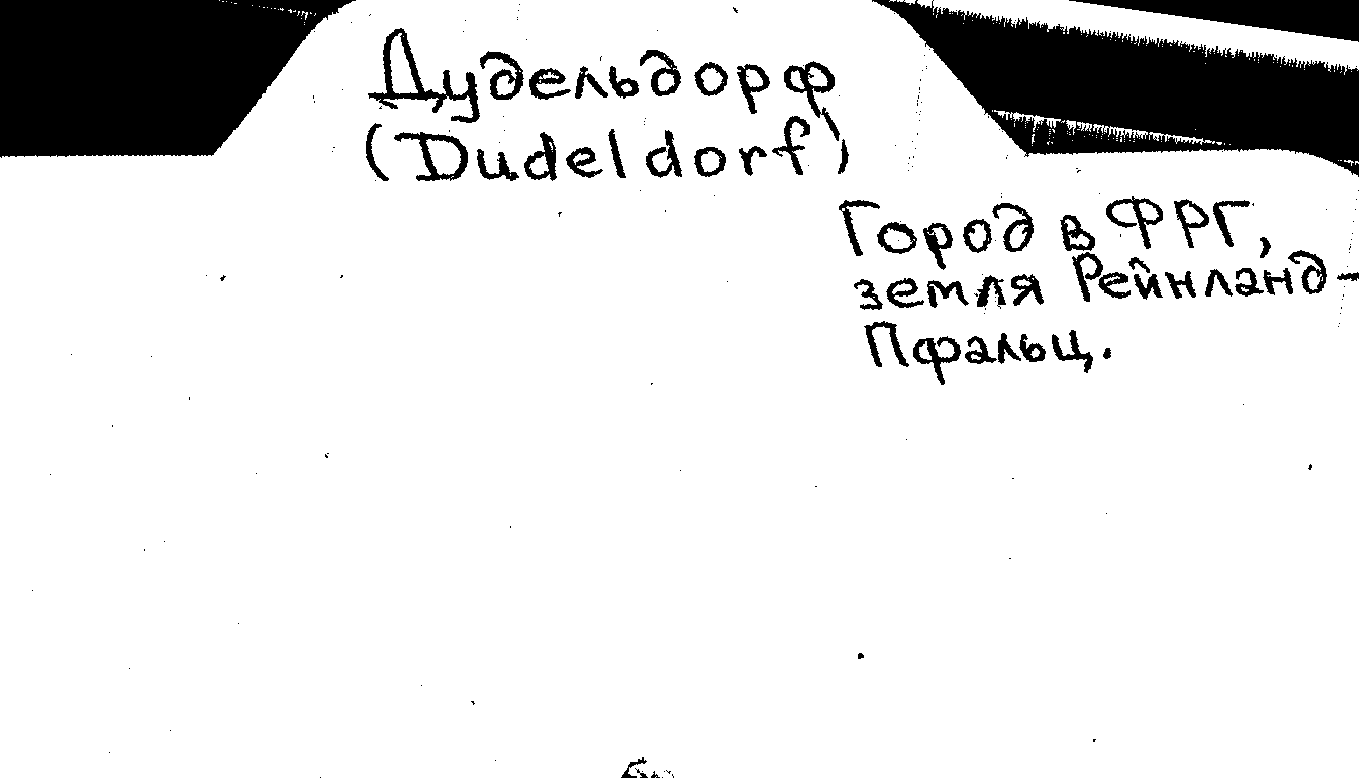 Дудельдорф
(Dudeldorf)
Город в ФРГ,
земля Рейнланд-
Пфальц.